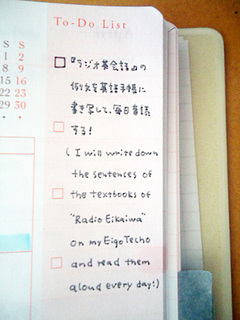 To-Do List
S S
1 2
8 9
15 16
22 23
29 30
『ラジオ英会話』の
例文を英語手帳に
書き写して、毎日音読
する!
( I will write down
the sentences of
the textbooks of
"Radio Eikaiwa"
on my Eigo Techo
and read them
aloud every day:)